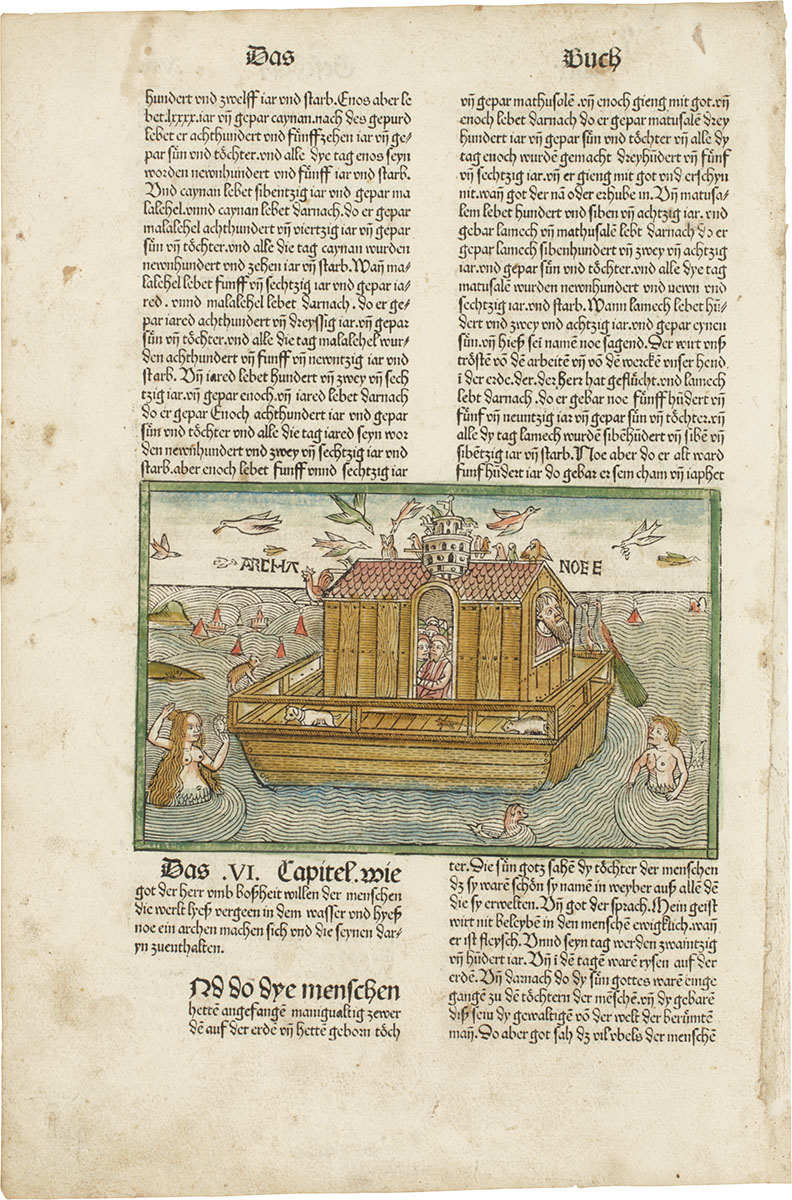 Das
Buch
hundert vnd zwelff iar vnd starb. Enos aber le
bet.lxxxx.iar vñ gepar caynan.nach des gepurd
lebet er achthundert vnd fúnffzehen iar vñ ge⸗
par sún vnd tóchter.vnd alle dye tag enos seyn
worden newnhundert vnd fúnff iar vnd starb.
Vnd caynan lebet sibentzig iar vnd gepar ma
lalehel.vnnd caynan lebet darnach.do er gepar
malalehel achthundert vñ viertzig iar vñ gepar
sún vñ tóchter.vnd alle die tag caynan wurden
newnhundert vnd zehen iar vñ starb.Wañ ma⸗
lalehel lebet funff vñ sechtzig iar vnd gepar ia⸗
red. vnnd malalehel lebet darnach. do er ge⸗
par iared achthundert vñ dreyssig iar.vñ gepar
sún vñ tóchter.vnd alle die tag malalehel wur⸗
den achthundert vñ funff vñ newntzig iar vnd
starb. Vñ iared lebet hundert vñ zwey vñ sech
tzig iar.vñ gepar enoch.vñ iared lebet darnach
do er gepar Enoch achthundert iar vnd gepar
sún vnd tóchter vnd alle die tag iared seyn wor
den newnhundert vnd zwey vñ sechtzig iar vnd
starb.aber enoch lebet funff vnnd sechtzig iar
vñ gepar mathusalē .vñ enoch gieng mit got.vñ
enoch lebet darnach do er gepar matusalē drey
hundert iar vñ gepar sún vñ tóchter vñ alle dy
tag enoch wurdē gemacht dreyhūdert vñ fúnf
vñ sechtzig iar.vñ er gieng mit got vnd erschyn
nit.wañ got der nā oder erhube in. Vñ matusa⸗
lem lebet hundert vnd siben vñ achtzig iar. vnd
gebar lamech vñ mathusalē lebt darnach do er
gepar lamech sibenhundert vñ zwey vñ achtzig
iar.vnd gepar sún vnd tóchter.vnd alle dye tag
matusalē wurden newnhundert vnd newn vnd
sechtzig iar.vnd starb. Wann lamech lebet hū⸗
dert vnd zwey vnd achtzig iar.vnd gepar eynen
sún.vñ hieß sei namē noe sagend. Der wirt vnß
tróstē võ dē arbeitē vñ võ dē werckē vnser hend
ī der erde.der.der Herr hat geflúcht.vnd lamech
lebt darnach.do er gebar noe fúnff hūdert vñ
fúnf vñ neuntzig iar vñ gepar sún vñ tóchter.vñ
alle dy tag lamech wurdē sibēhūdert vñ sibē vñ
sibētzig iar vñ starb.Noe aber do er alt ward
funf hūdert iar do gebar er sem cham vñ iaphet
ARCHA
NOEE
Das .VI. Capitel. wie
got der herr vmb boßheit willen der menschen
die werlt lyeß vergeen in dem wasser vnd hyeß
noe ein archen machen sich vnd die seynen dar⸗
yn zuenthalten.
Nd do dye menschen
hettē angefangē manigualtig zewer
dē auf der erdē vñ hettē geborn tóch
ter. Die sún gotz sahē dy tóchter der menschen
dz sy warē schón sy namē in weyber auß allē dē
die sy erwelten. Vñ got der sprach. Mein geist
wirt nit beleybē in den menschē ewigklich.wañ
er ist fleysch. Vnnd seyn tag werden zwaintzig
vñ hūdert iar. Vñ ī dē tagē warē rysen auf der
erdē. Vñ darnach do dy sún gottes warē einge
gangē zu dē tóchtern der mēschē.vñ dy gebarē
diß sein dy gewaltigē võ der welt der berúmtē
mañ. Do aber got sah dz vil vbels der menschē